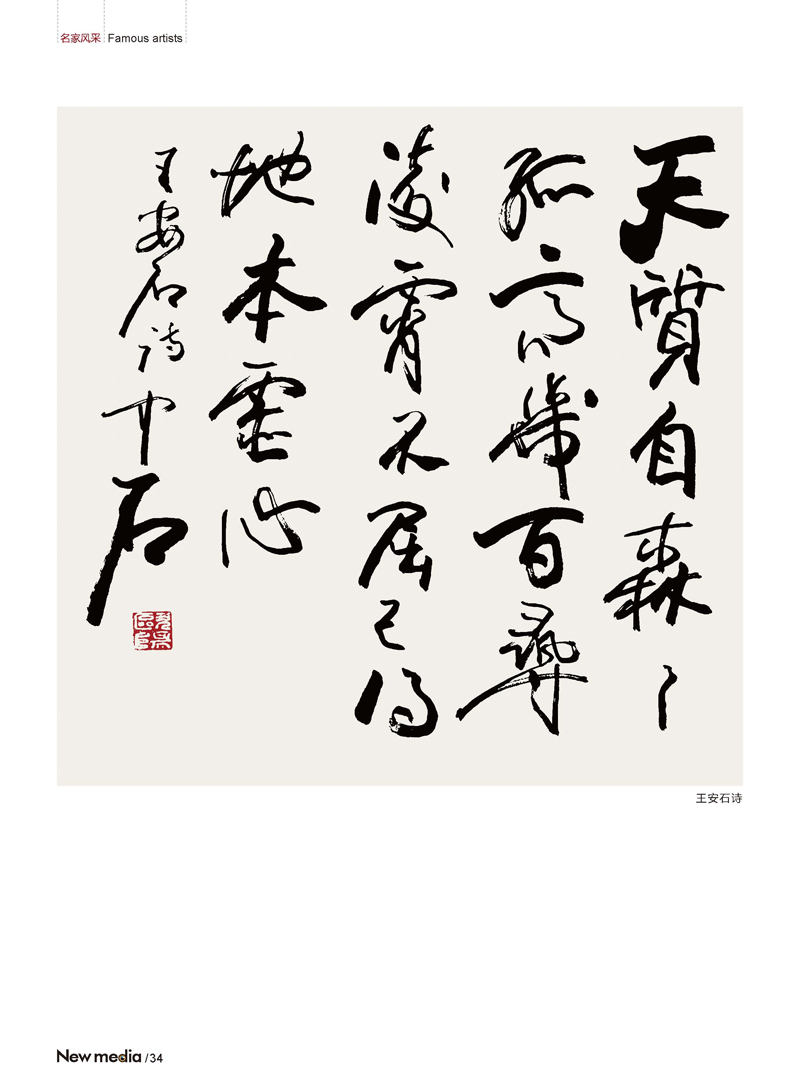 名家风采 Famous artists
天質自森々
孤高幾百尋
凌霄不屈己得
地本虛心
王安石詩中石
王安石诗
New media /34